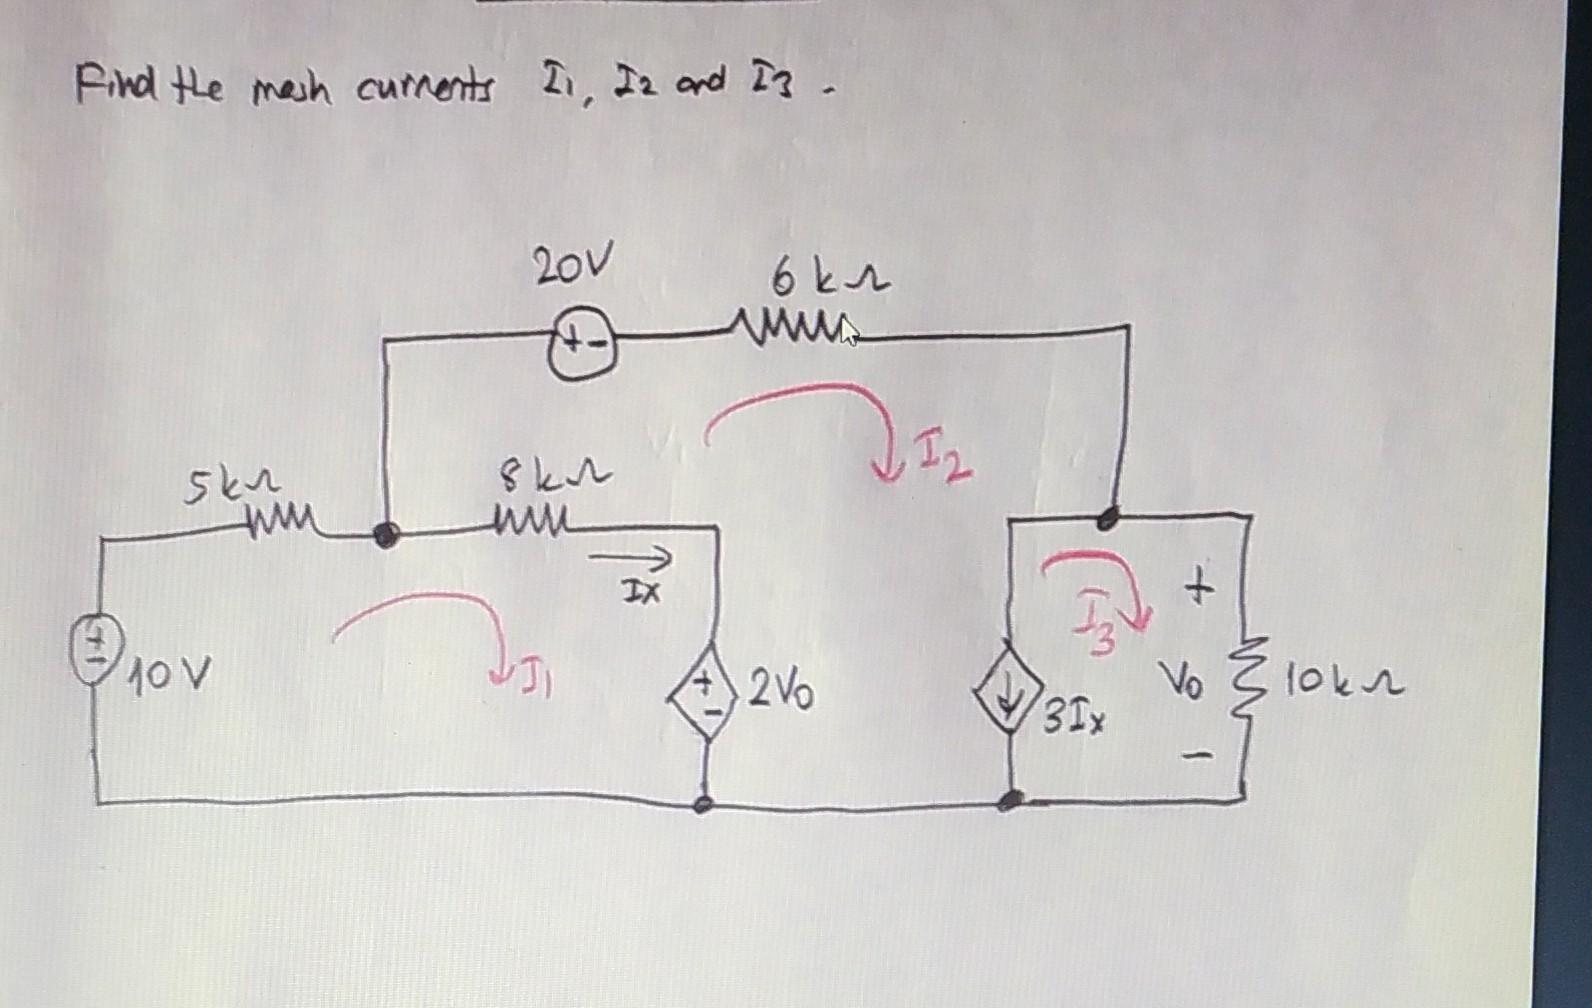 Find the mesh currents I1, I2 and I3.
20V
6kΩ
+ -
I2
5kΩ
8kΩ
Ix
+
-
10V
I1
+
-
2Vo
3Ix
I3
+
Vo
-
10kΩ